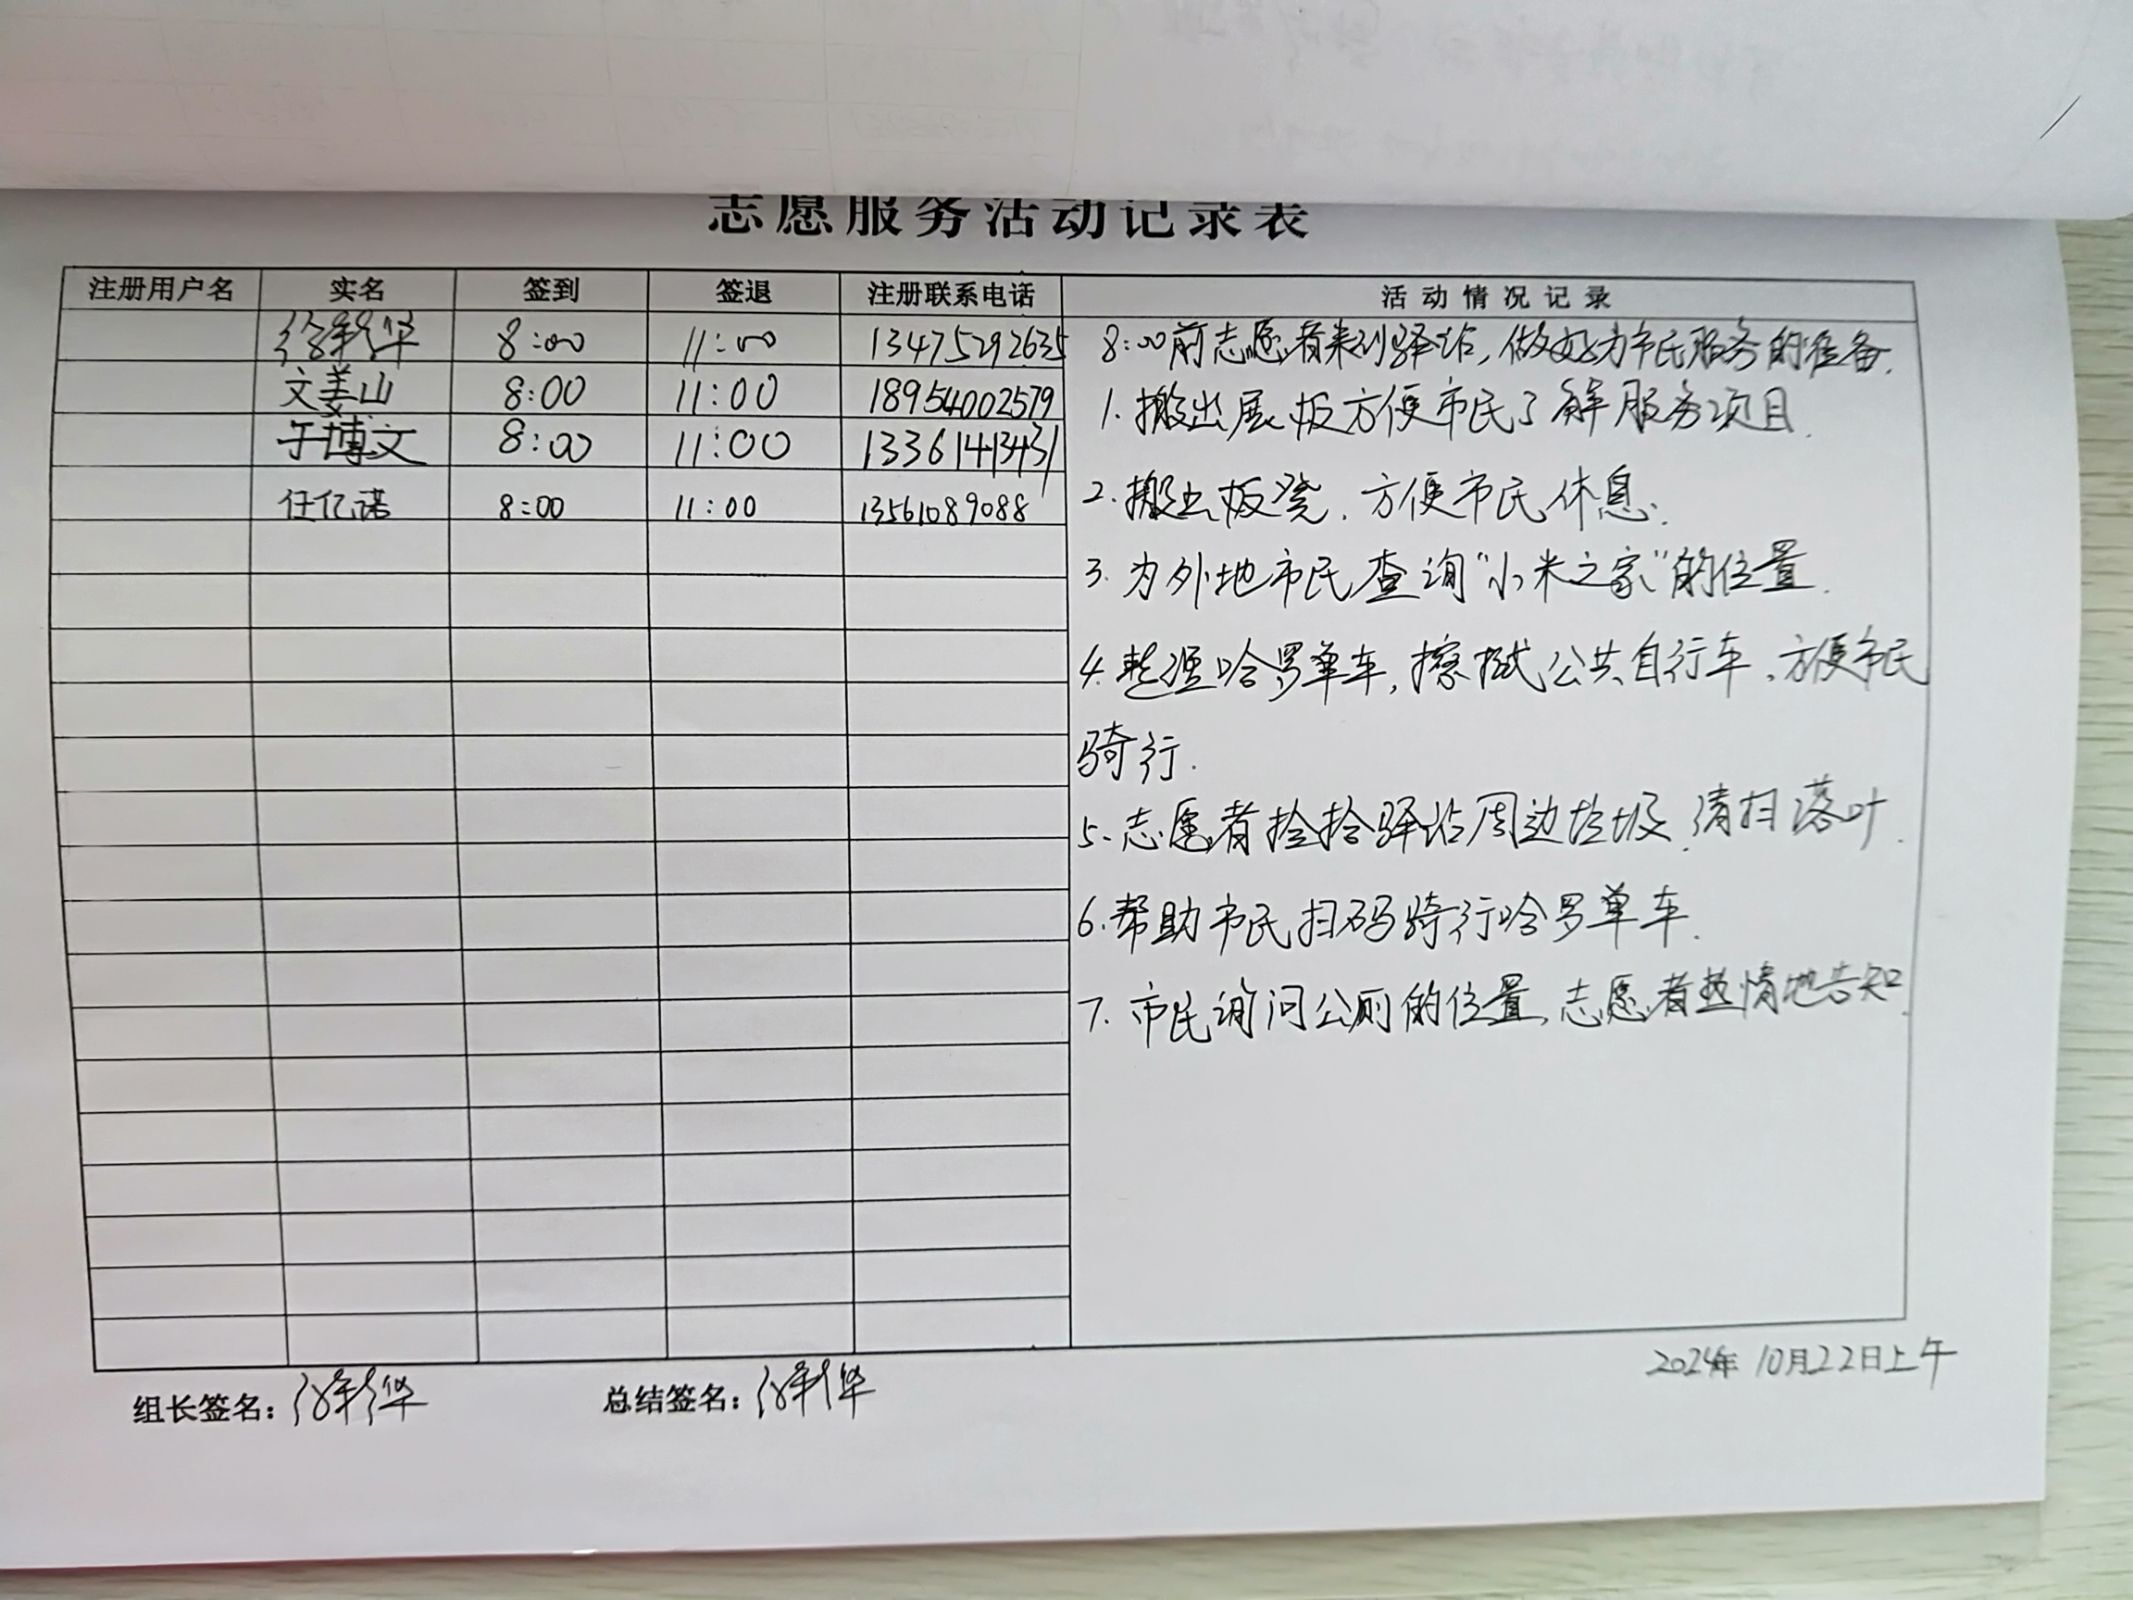 志愿服务活动记录表
注册用户名 实名 签到 签退 注册联系电话 活动情况记录
徐新华 8:00 11:00 13475292635
文姜山 8:00 11:00 18954002579
于博文 8:00 11:00 13361413431
任亿诺 8:00 11:00 13561089088
8:00前志愿者来到驿站,做好为市民服务的准备.
1.搬出展板方便市民了解服务项目.
2.搬出板凳.方便市民休息.
3.为外地市民查询“小米之家”的位置.
4.整理哈罗单车,擦拭公共自行车.方便市民
骑行.
5.志愿者捡拾驿站周边垃圾.清扫落叶.
6.帮助市民扫码骑行哈罗单车.
7.市民询问公厕的位置,志愿者热情地告知.
2024年10月22日上午
组长签名:徐新华 总结签名:徐新华